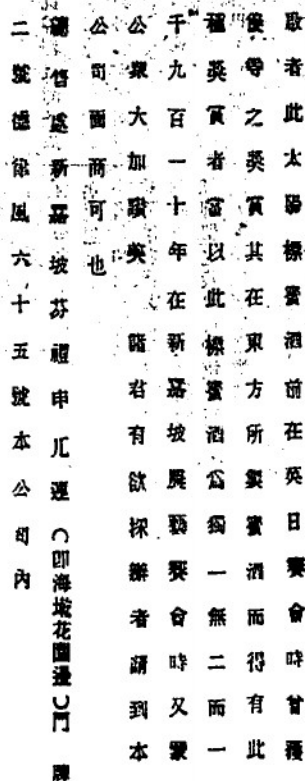 啟者此太陽標蜜酒前在英日賽會時曾獲
優等之英賞其在東方所製蜜酒而得有此
種英賞者當以此標蜜酒為獨一無二而一
千九百一十年在新嘉坡展藝賽會時又蒙
公眾大加讚英 諸君有欲採辦者請到本
公司面商可也
總督處新嘉坡芬禮申兀運（即海墘花園邊）門牌
二號德律風六十五號本公司內